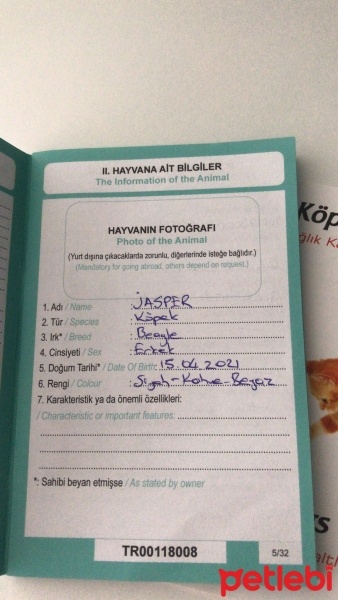 II. HAYVANA AİT BİLGİLER
The Information of the Animal
HAYVANIN FOTOĞRAFI
Photo of the Animal
(Yurt dışına çıkacaklarda zorunlu, diğerlerinde isteğe bağlıdır.)
(Mandatory for going abroad, others depend on request.)
1. Adı / Name : JASPER
2. Tür / Species : Köpek
3. Irk* / Breed : Beagle
4. Cinsiyeti / Sex : Erkek
5. Doğum Tarihi* / Date Of Birth: 15.04.2021
6. Rengi / Colour : Siyah-Kahve-Beyaz
7. Karakteristik ya da önemli özellikleri:
/ Characteristic or important features:
*: Sahibi beyan etmişse / As stated by owner
TR00118008
5/32
Köp
ğlık Ka
petlebi